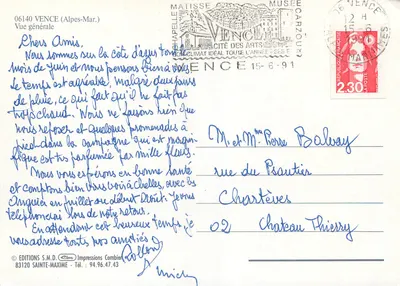 06140 VENCE (Alpes-Mar.)
Vue générale
Chers Amis.
Nous sommes sur la côte d'azur tout le
mois de Juin et nous pensons bien à vous
Le temps est agréable, malgré deux jours
de pluie, ce qui fait qu'il ne fait pas
trop chaud. Nous ne faisons rien que
nous reposer et quelques promenades à
pied dans la campagne qui est magni-
fique et très parfumée par mille fleurs.
Nous vous espérons en bonne santé
et comptons bien vous voir à Chelles, avec les
en juillet ou début Août. Je vous
téléphonerai lors de notre retour.
En attendant cet heureux temps je
vous adresse toutes nos amitiés
© EDITIONS S.M.D. Impressions Combier
83120 SAINTE-MAXIME Tél. 94.96.47.43
CHAPELLE MATISSE MUSEE CARZOU
VENCE
CITÉ DES ARTS
CLIMAT IDÉAL TOUTE L'ANNÉE
VENCE 15-6-91
VENCE
ALPES MARITIMES
2,30
M et Mme Pierre Balvay
rue du Psautier
Chartèves
02 Chateau Thierry